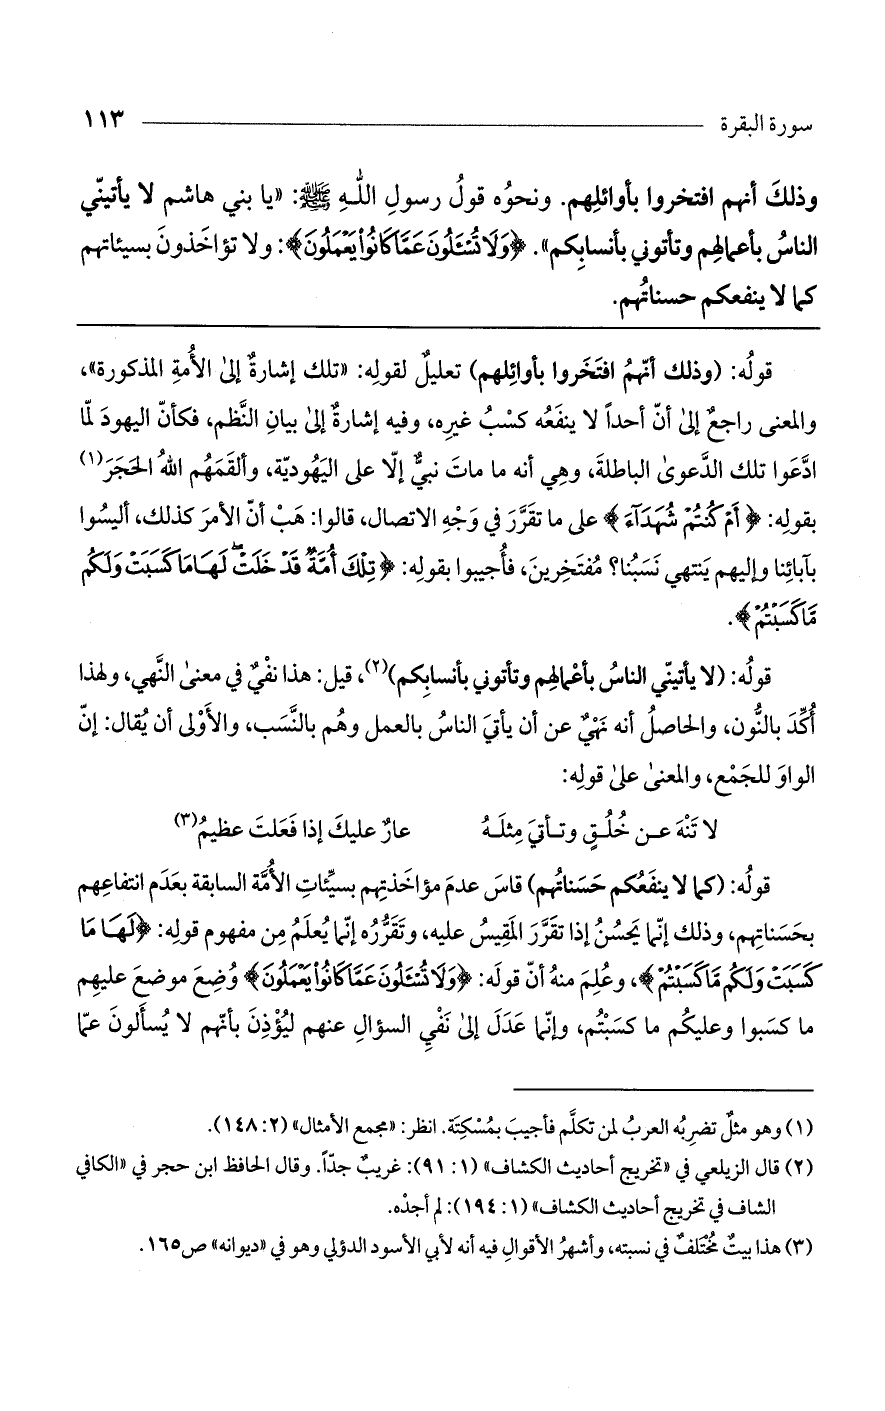 سورة البقرة ١١٣
وذلكَ أنهم افتخروا بأوائلِهم. ونحوُه قولُ رسولِ اللَّهِ ﷺ: «يا بني هاشم لا يأتينّي
الناسُ بأعمالِهم وتأتوني بأنسابِكم». ﴿وَلَا تُسْـَٔلُونَ عَمَّا كَانُوا۟ يَعْمَلُونَ﴾: ولا تؤاخَذونَ بسيئاتهم
كما لا ينفعكم حسناتُهم.
قولُه: (وذلك أنّهمُ افتَخَروا بأوائِلهم) تعليلٌ لقولِه: «تلك إشارةٌ إلىٰ الأُمةِ المذكورة»،
والمعنى راجعٌ إلىٰ أنّ أحداً لا ينفَعُه كسْبُ غيرِه، وفيه إشارةٌ إلىٰ بيانِ النَّظم، فكأنّ اليهودَ لمّا
ادَّعَوا تلك الدَّعوىٰ الباطلةَ، وهِي أنه ما ماتَ نبيٌّ إلّا على اليَهُوديّة، وألقَمَهُم اللهُ الحَجَرَ(١)
بقولِه: ﴿أَمْ كُنتُمْ شُهَدَآءَ﴾ على ما تقرَّرَ في وَجْهِ الاتصال، قالوا: هَبْ أنّ الأمرَ كذلك، أليسُوا
بآبائِنا وإليهم يَنتهي نَسَبُنا؟ مُفتَخِرينَ، فأُجيبوا بقولِه: ﴿تِلْكَ أُمَّةٌ قَدْ خَلَتْ ۖ لَهَا مَا كَسَبَتْ وَلَكُم
مَّا كَسَبْتُمْ﴾.
قولُه: (لا يأتينّي الناسُ بأعْمالِهم وتأتوني بأنسابِكم)(٢)، قيل: هذا نفْيٌ في معنىٰ النَّهي، ولهذا
أُكِّدَ بالنُّون، والحاصلُ أنه نهْيٌ عن أن يأتيَ الناسُ بالعمل وهُم بالنَّسَب، والأَوْلى أن يُقال: إنّ
الواوَ للجَمْع، والمعنىٰ علىٰ قولِه:
لا تَنْهَ عـن خُلُـقٍ وتـأتيَ مِثلَـهُ عارٌ عليكَ إذا فَعَلتَ عظيمُ(٣)
قولُه: (كما لا ينفَعُكم حَسَناتُهم) قاسَ عدمَ مؤاخَذتِهم بسيِّئاتِ الأُمَّة السابقة بعَدَم انتفاعِهم
بحَسَناتِهم، وذلك إنّما يَحسُنُ إذا تقرَّرَ المَقِيسُ عليه، وتَقرُّرُه إنّما يُعلَمُ مِن مفهوم قولِه: ﴿لَهَا مَا
كَسَبَتْ وَلَكُم مَّا كَسَبْتُمْ﴾، وعُلِمَ منهُ أنّ قولَه: ﴿وَلَا تُسْـَٔلُونَ عَمَّا كَانُوا۟ يَعْمَلُونَ﴾ وُضِعَ موضعَ عليهِم
ما كسَبوا وعليكُم ما كسَبْتُم، وإنّما عَدَلَ إلىٰ نَفْيِ السؤالِ عنهم ليُؤْذِنَ بأنّهم لا يُسأَلونَ عمّا
(١) وهو مثلٌ تضرِبُه العربُ لمن تكلَّم فأجيبَ بمُسْكِتَة. انظر: «مجمع الأمثال» (٢: ١٤٨).
(٢) قال الزيلعي في «تخريج أحاديث الكشاف» (١: ٩١): غريبٌ جدّاً. وقال الحافظ ابن حجر في «الكافي
الشاف في تخريج أحاديث الكشاف» (١: ١٩٤): لم أجدْه.
(٣) هذا بيتٌ مُختَلفٌ في نسبته، وأشهرُ الأقوالِ فيه أنه لأبي الأسود الدؤلي وهو في «ديوانه» ص١٦٥.